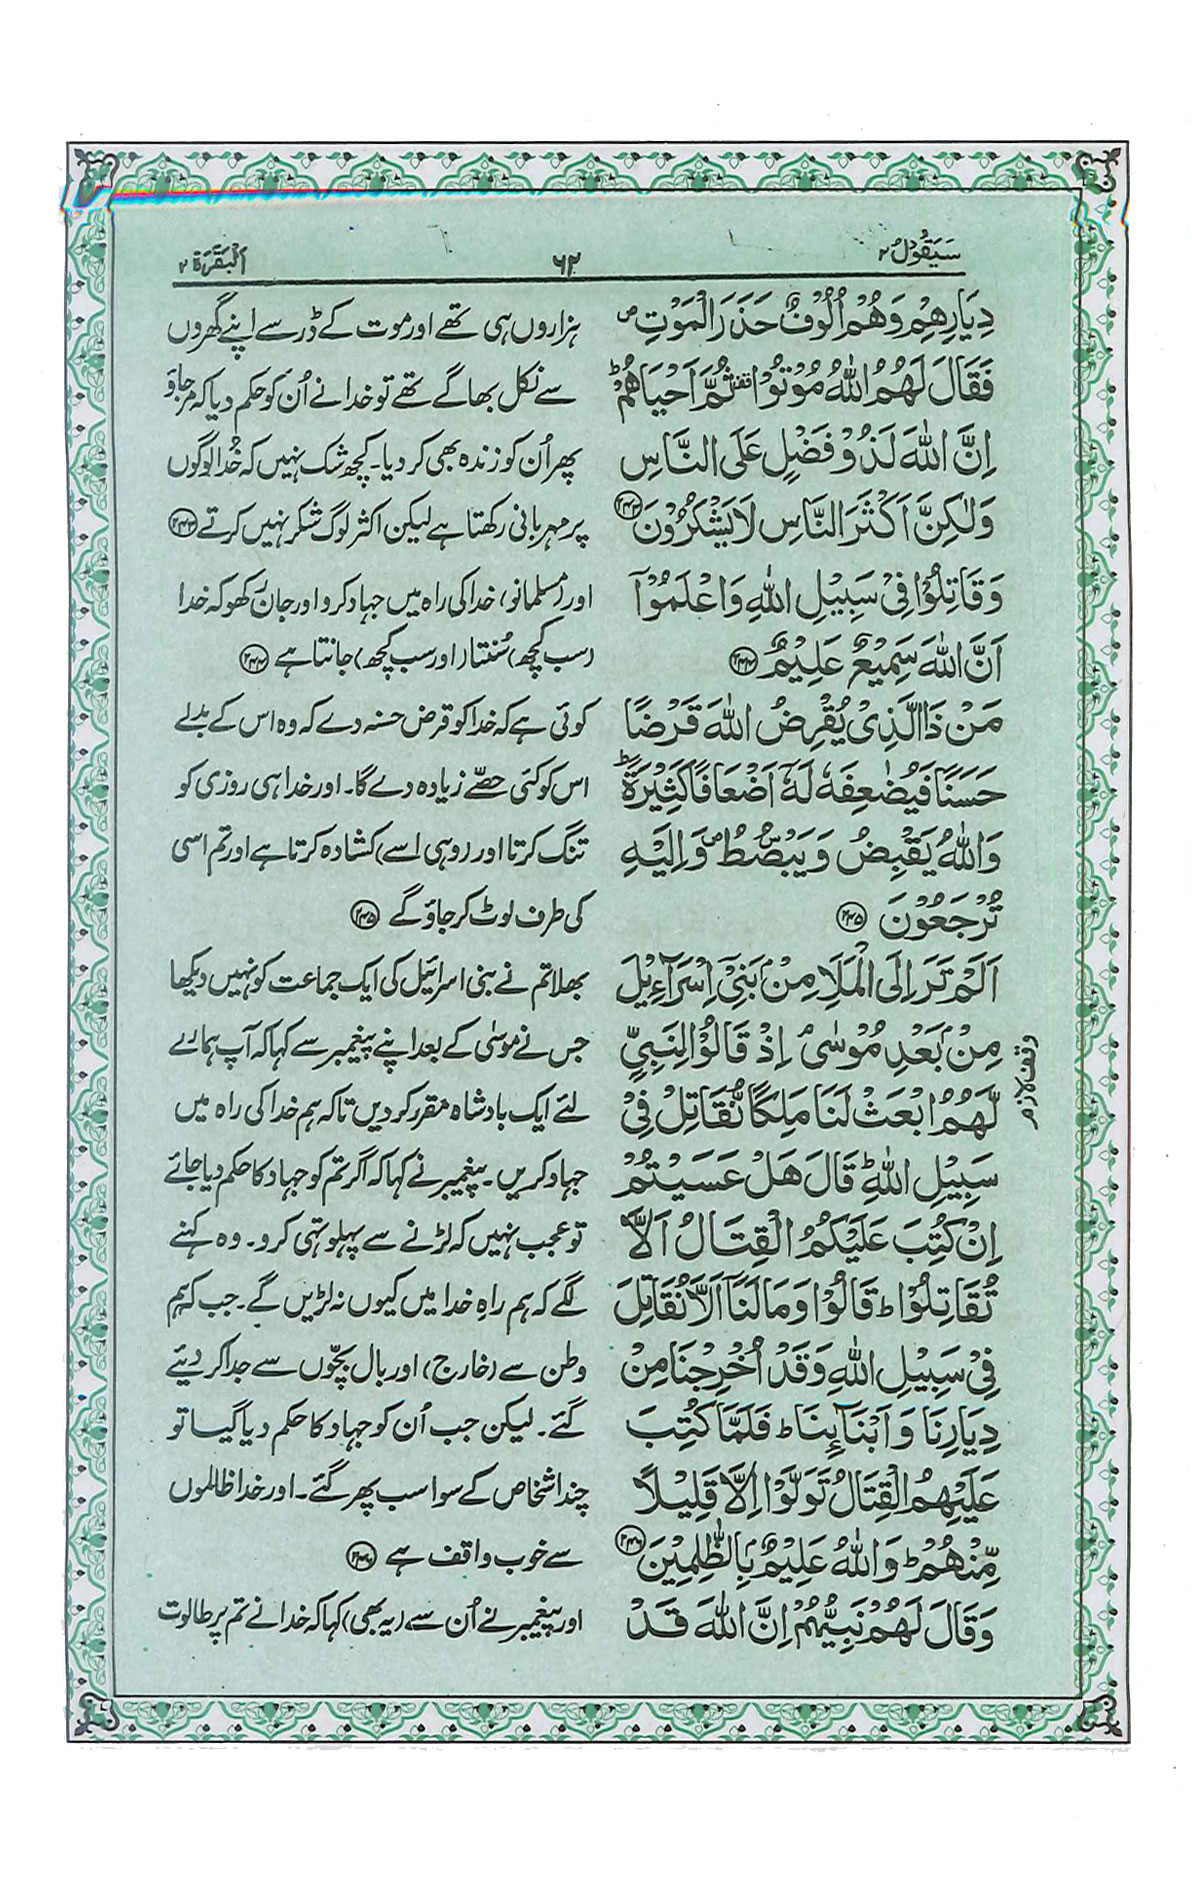 سَيَقُوْلُ ٢
٦٢
اَلْبَقَرَة ٢
دِيَارِهِمْ وَهُمْ اُلُوْفٌ حَذَرَ الْمَوْتِ ص
فَقَالَ لَهُمُ اللّٰهُ مُوْتُوْا قف ثُمَّ اَحْيَاهُمْ ط
اِنَّ اللّٰهَ لَذُوْ فَضْلٍ عَلَى النَّاسِ
وَلٰكِنَّ اَكْثَرَ النَّاسِ لَا يَشْكُرُوْنَ ٢٤٣
وَقَاتِلُوْا فِيْ سَبِيْلِ اللّٰهِ وَاعْلَمُوْٓا
اَنَّ اللّٰهَ سَمِيْعٌ عَلِيْمٌ ٢٤٤
مَنْ ذَا الَّذِيْ يُقْرِضُ اللّٰهَ قَرْضًا
حَسَنًا فَيُضٰعِفَهٗ لَهٗٓ اَضْعَافًا كَثِيْرَةً ط
وَاللّٰهُ يَقْبِضُ وَيَبْصُۜطُ ص وَاِلَيْهِ
تُرْجَعُوْنَ ٢٤٥
اَلَمْ تَرَ اِلَى الْمَلَاِ مِنْۢ بَنِيْٓ اِسْرَآءِيْلَ
مِنْۢ بَعْدِ مُوْسٰى م اِذْ قَالُوْا لِنَبِيٍّ
لَّهُمُ ابْعَثْ لَنَا مَلِكًا نُّقَاتِلْ فِيْ
سَبِيْلِ اللّٰهِ ط قَالَ هَلْ عَسَيْتُمْ
اِنْ كُتِبَ عَلَيْكُمُ الْقِتَالُ اَلَّا
تُقَاتِلُوْا ط قَالُوْا وَمَا لَنَآ اَلَّا نُقَاتِلَ
فِيْ سَبِيْلِ اللّٰهِ وَقَدْ اُخْرِجْنَا مِنْ
دِيَارِنَا وَاَبْنَآئِنَا ط فَلَمَّا كُتِبَ
عَلَيْهِمُ الْقِتَالُ تَوَلَّوْا اِلَّا قَلِيْلًا
مِّنْهُمْ ط وَاللّٰهُ عَلِيْمٌۢ بِالظّٰلِمِيْنَ ٢٤٦
وَقَالَ لَهُمْ نَبِيُّهُمْ اِنَّ اللّٰهَ قَدْ
وقف لازم
ہزاروں ہی تھے اور موت کے ڈر سے اپنے گھروں
سے نکل بھاگے تھے تو خدا نے اُن کو حکم دیا کہ مر جاؤ
پھر اُن کو زندہ بھی کر دیا۔ کچھ شک نہیں کہ خُدا لوگوں
پر مہربانی رکھتا ہے لیکن اکثر لوگ شکر نہیں کرتے ٢٤٣
اور (مسلمانو) خدا کی راہ میں جہاد کرو اور جان رکھو کہ خدا
(سب کچھ) سُنتا (اور سب کچھ) جانتا ہے ٢٤٤
کوئی ہے کہ خدا کو قرض حسنہ دے کہ وہ اس کے بدلے
اس کو کئی حصّے زیادہ دے گا۔ اور خدا ہی روزی کو
تنگ کرتا اور (وہی اسے) کشادہ کرتا ہے اور تم اسی
کی طرف لوٹ کر جاؤ گے ٢٤٥
بھلا تم نے بنی اسرائیل کی ایک جماعت کو نہیں دیکھا
جس نے موسٰی کے بعد اپنے پیغمبر سے کہا کہ آپ ہمارے
لئے ایک بادشاہ مقرر کر دیں تاکہ ہم خدا کی راہ میں
جہاد کریں۔ پیغمبر نے کہا کہ اگر تم کو جہاد کا حکم دیا جائے
تو عجب نہیں کہ لڑنے سے پہلو تہی کرو۔ وہ کہنے
لگے کہ ہم راہِ خدا میں کیوں نہ لڑیں گے۔ جب کہ ہم
وطن سے (خارج) اور بال بچّوں سے جدا کر دیئے
گئے۔ لیکن جب اُن کو جہاد کا حکم دیا گیا تو
چند اشخاص کے سوا سب پھر گئے۔ اور خدا ظالموں
سے خوب واقف ہے ٢٤٦
اور پیغمبر نے اُن سے (یہ بھی) کہا کہ خدا نے تم پر طالوت